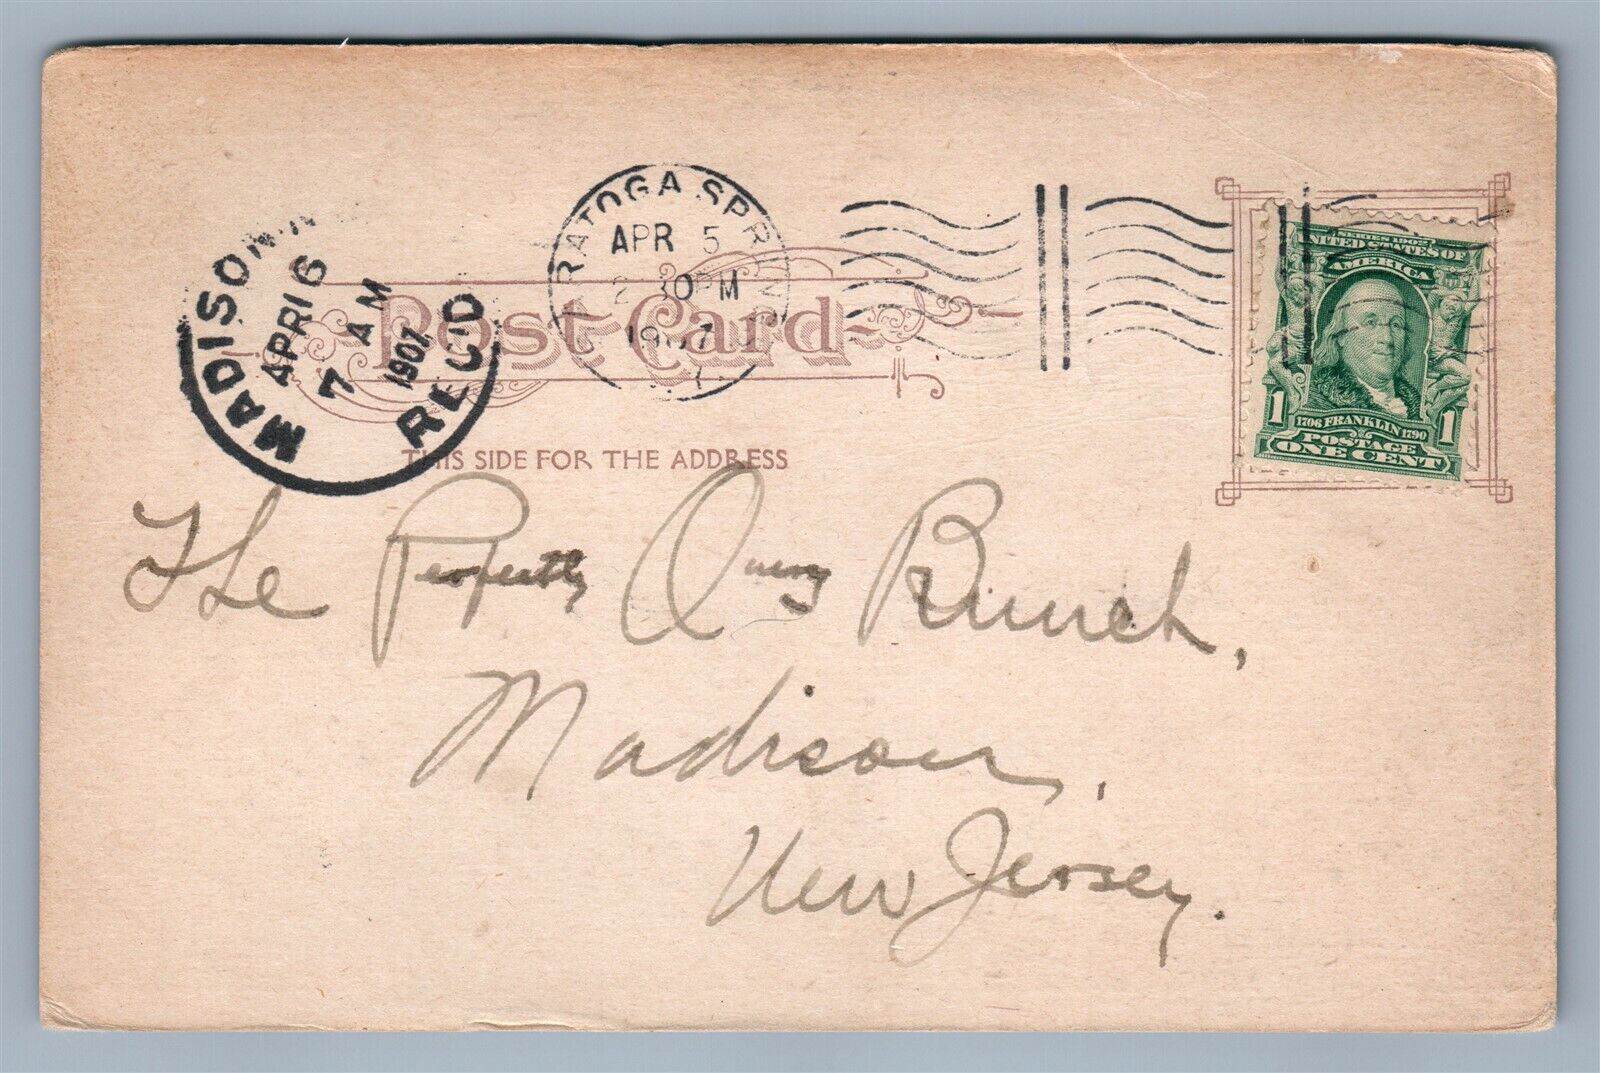 RATOGA SPRIN
APR 5
2 30PM
1907
Y.
MADISON N
APRI 6
7 AM
1907
REC'D
Post Card
THIS SIDE FOR THE ADDRESS
SERIES 1902
UNITED STATES OF
AMERICA
1 1
1706 FRANKLIN 1790
POSTAGE
ONE CENT
The Perfectly Bunch,
Madison,
New Jersey.